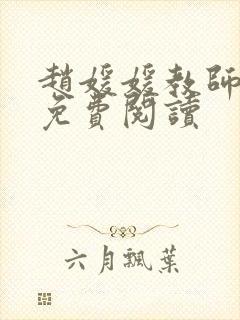 趙媛媛教師
免費閱讀
六月飄葉